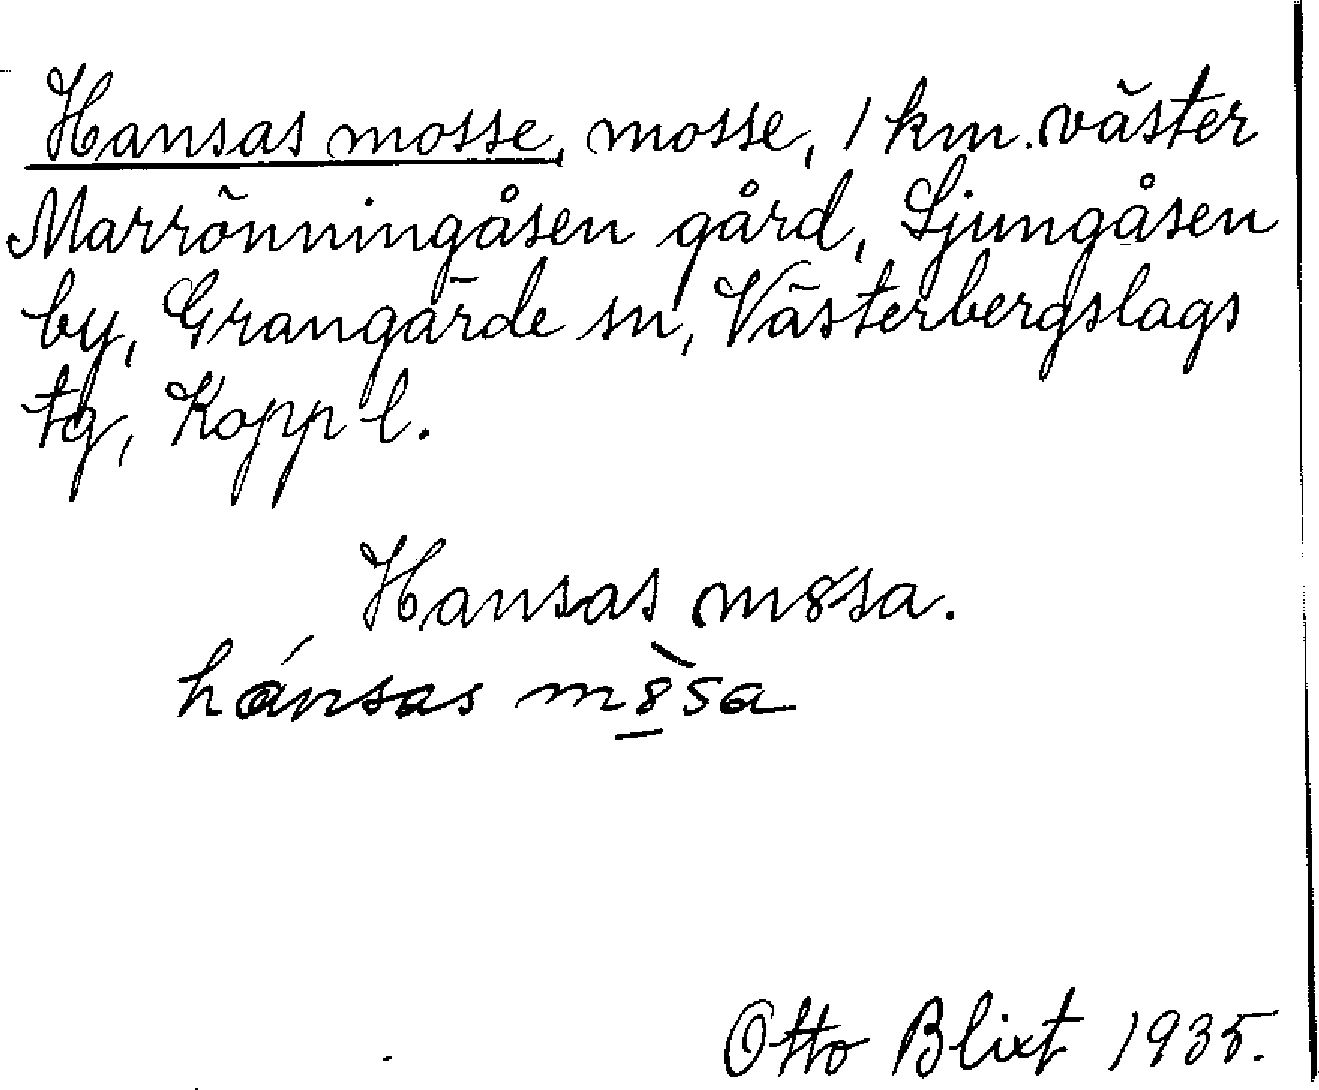 Hansas mosse, mosse, 1 km. väster
Marrönningåsen gård, Ljungåsen
by, Grangärde sn, Västerbergslags
tg, Kopp l.
Hansas m8sa.
hánsas m8̱̀sa
Otto Blixt 1935.